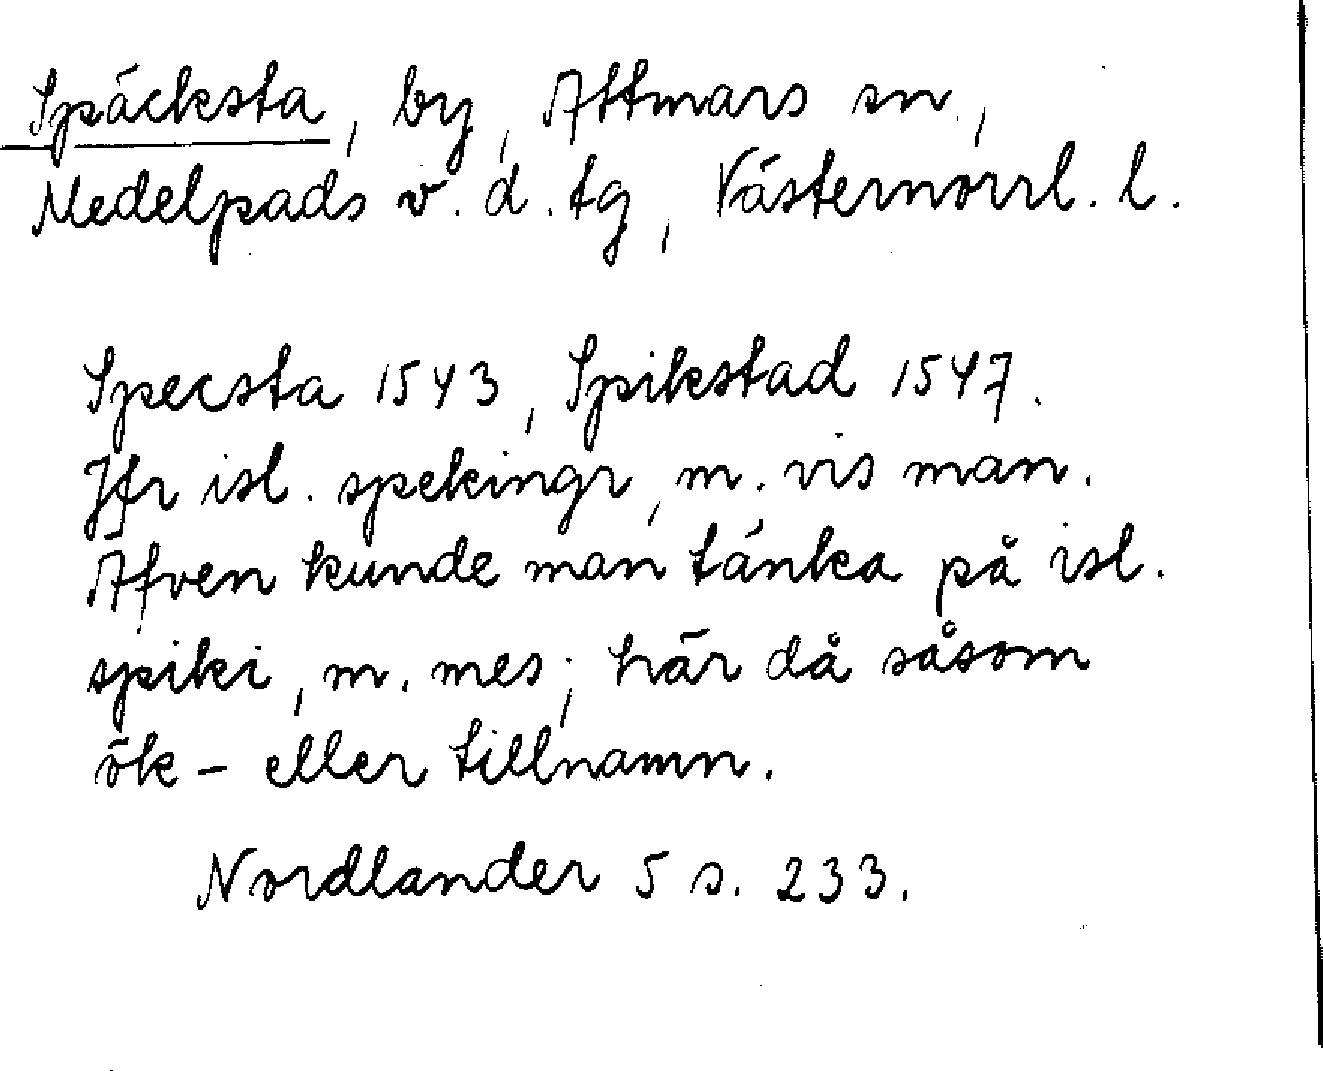 Späcksta, by, Attmars sn.,
Medelpads v. d. tg, Västernorrl. l.
Specsta 1543, Spikstad 1547.
Jfr isl. spekingr, m. vis man.
Äfven kunde man tänka på isl.
spiki, m. mes; här då såsom
ök- eller tillnamn.
Nordlander 5 s. 233.